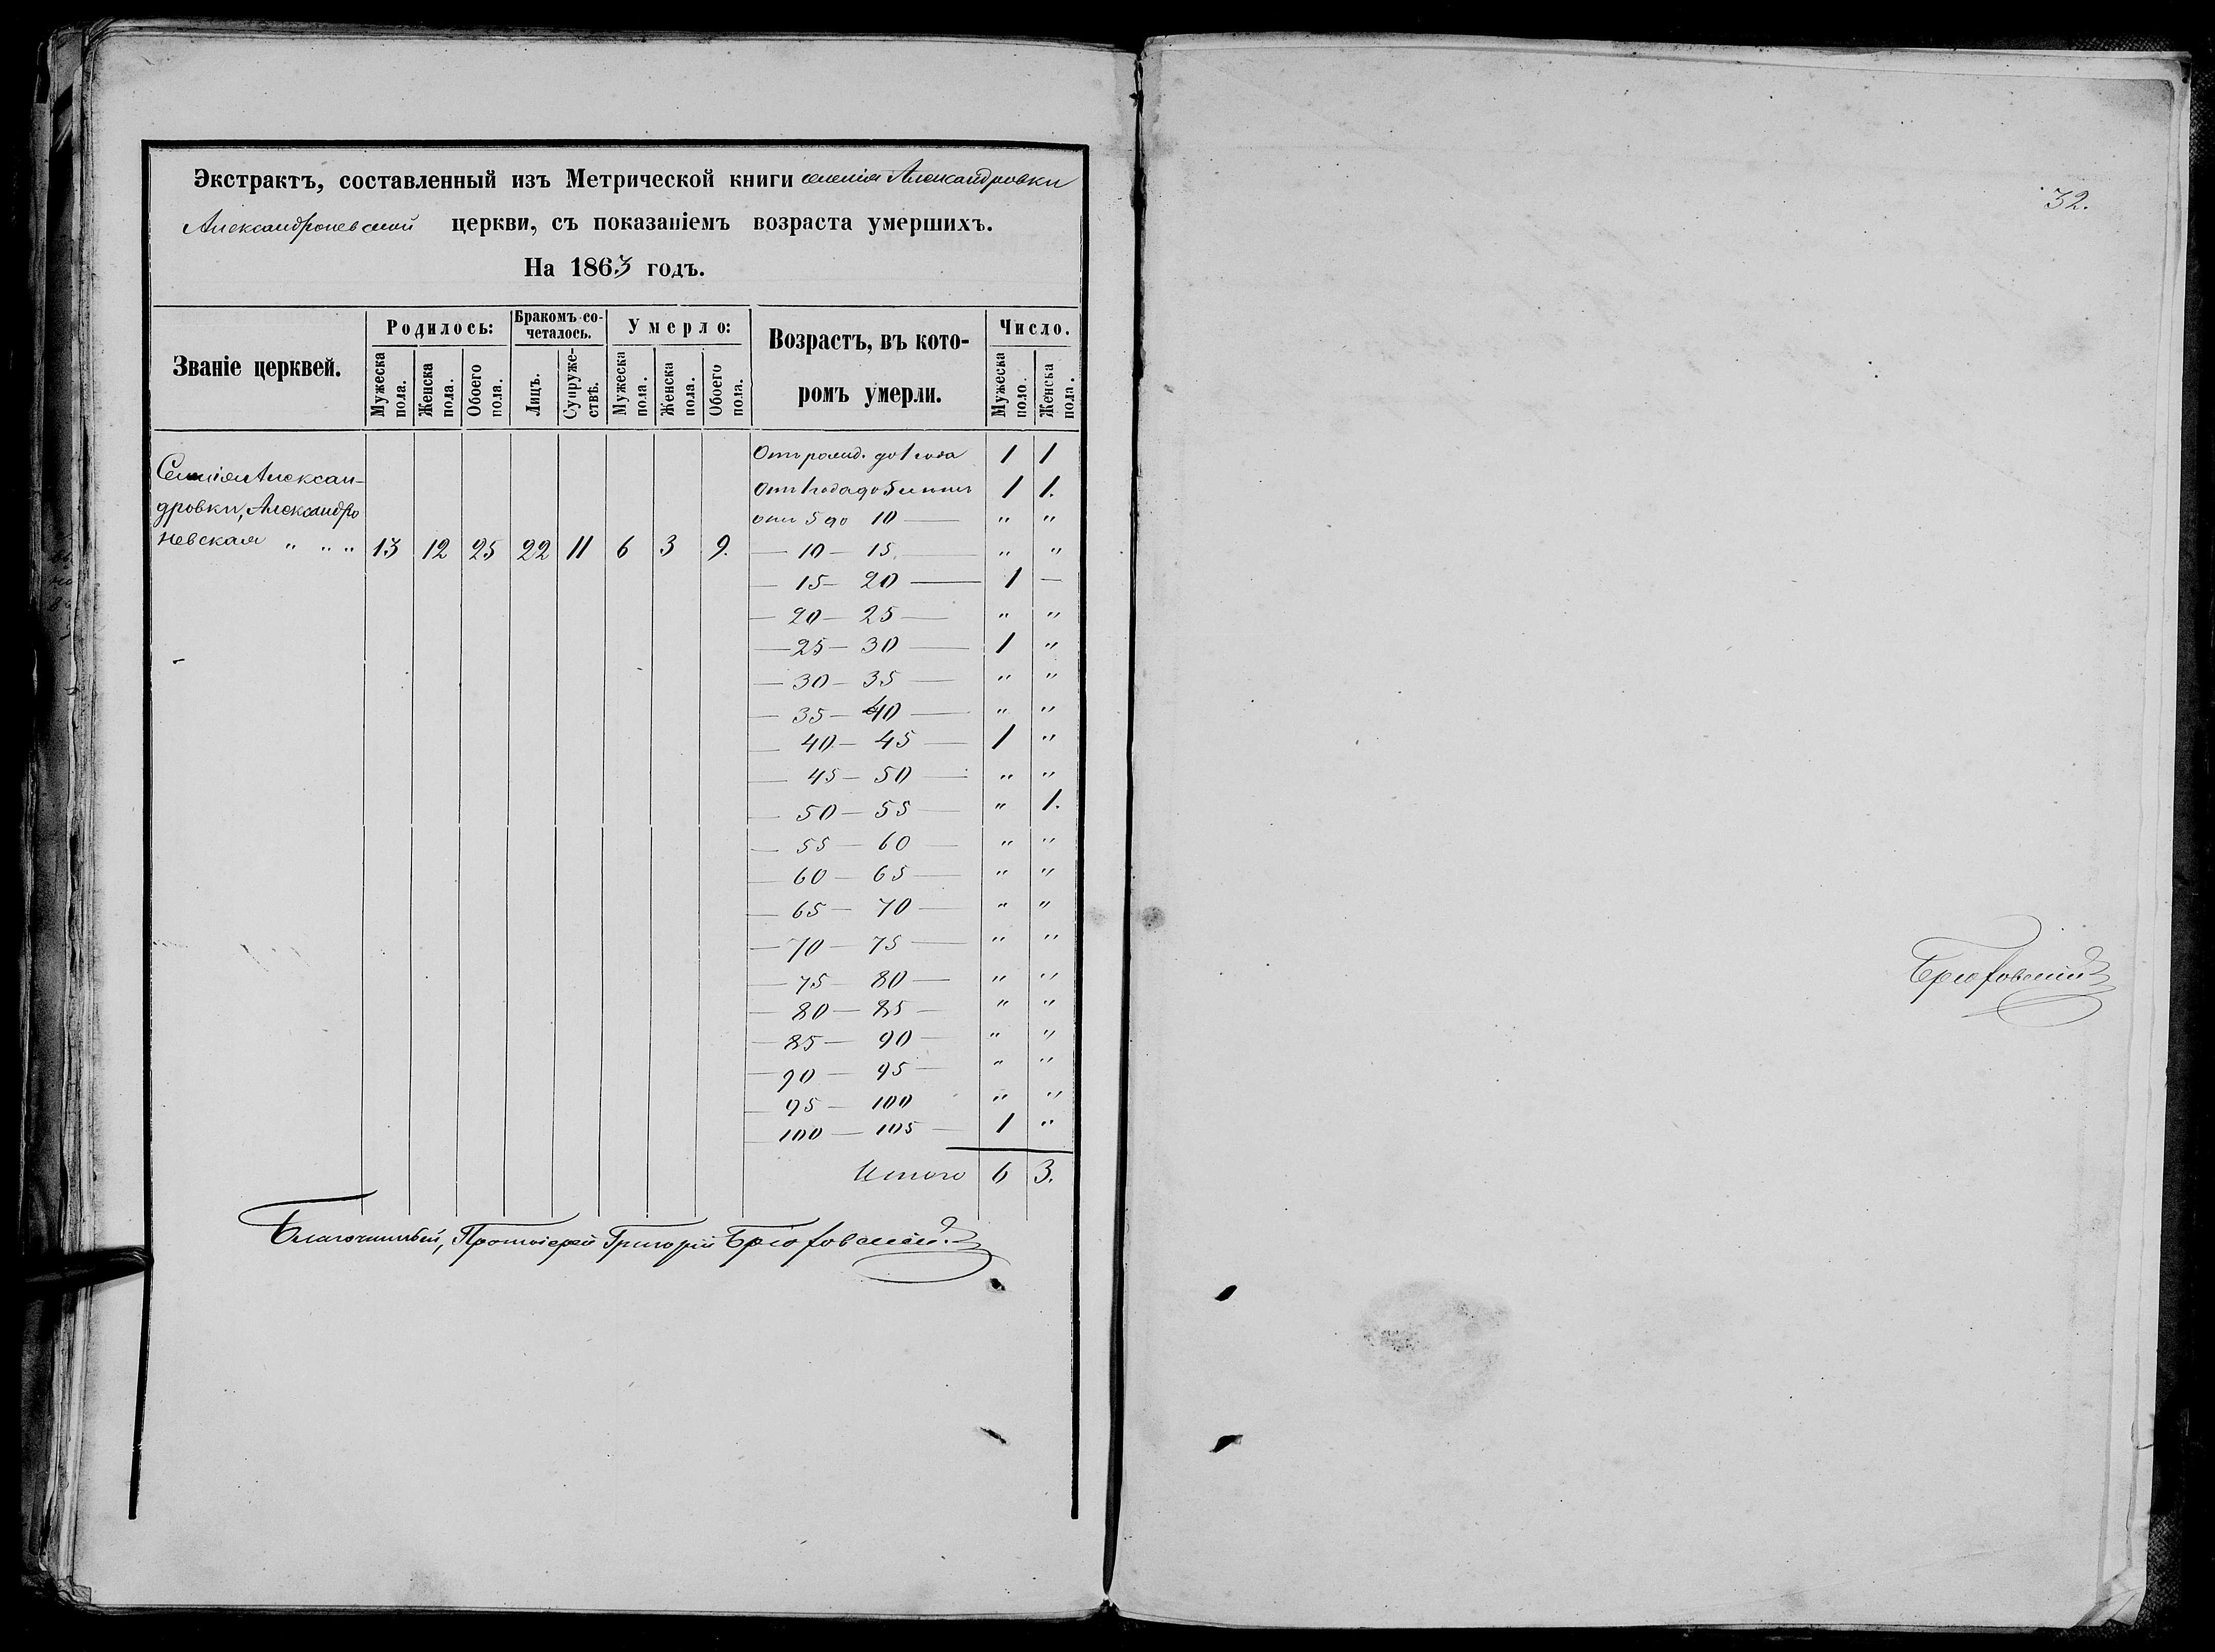 Экстрактъ, составленный изъ Метрической книги селенія Александровки
Александроневской церкви, съ показаніемъ возраста умершихъ.
На 1863 годъ.
Званіе церквей.
Родилось:
Бракомъ со-
четалось.
Умерло:
Возрастъ, въ кото-
ромъ умерли.
Число.
Мужеска пола.
Женска пола.
Обоего пола.
Лицъ.
Супруже-
ствъ.
Мужеска пола.
Женска пола.
Обоего пола.
Мужеска поло.
Женска пола.
Селенія Алексан-
дровки, Александро
невская " " " 13 12 25 22 11 6 3 9.
Отъ рожд. до 1 года 1 1
Отъ 1 года до 5 летъ 1 1.
отъ 5 до 10 — " "
— 10 — 15 — " "
— 15 — 20 — 1 —
— 20 — 25 — " "
— 25 — 30 — 1 "
— 30 — 35 — " "
— 35 — 40 — " "
— 40 — 45 — 1 "
— 45 — 50 — " "
— 50 — 55 — " 1.
— 55 — 60 — " "
— 60 — 65 — " "
— 65 — 70 — " "
— 70 — 75 — " "
— 75 — 80 — " "
— 80 — 85 — " "
— 85 — 90 — " "
— 90 — 95 — " "
— 95 — 100 " "
— 100 — 105 — 1 "
Итого 6 3.
Благочинный, Протоіерей Григорій
32.